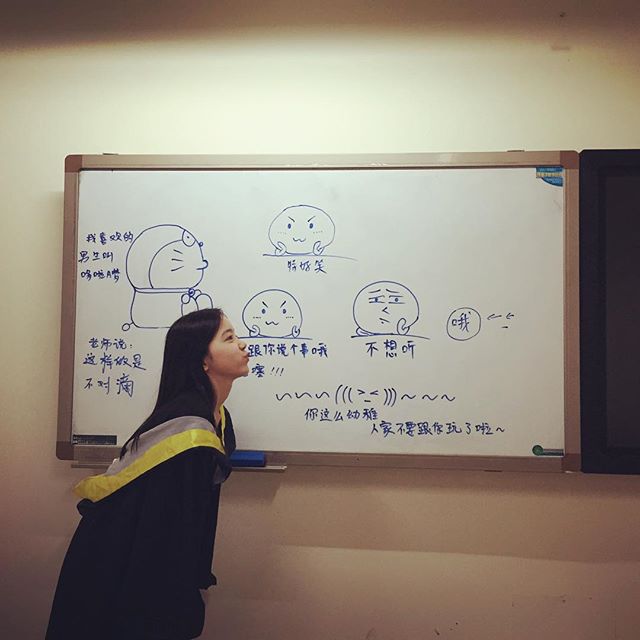 我喜欢的
男生叫
哆啦A梦
老师说:
这样做是
不对滴
特好笑
跟你说个事哦
噻!!!
不想听
哦
~~~(((>_<)))~~~
你这么幼稚
人家不要跟你玩了啦~